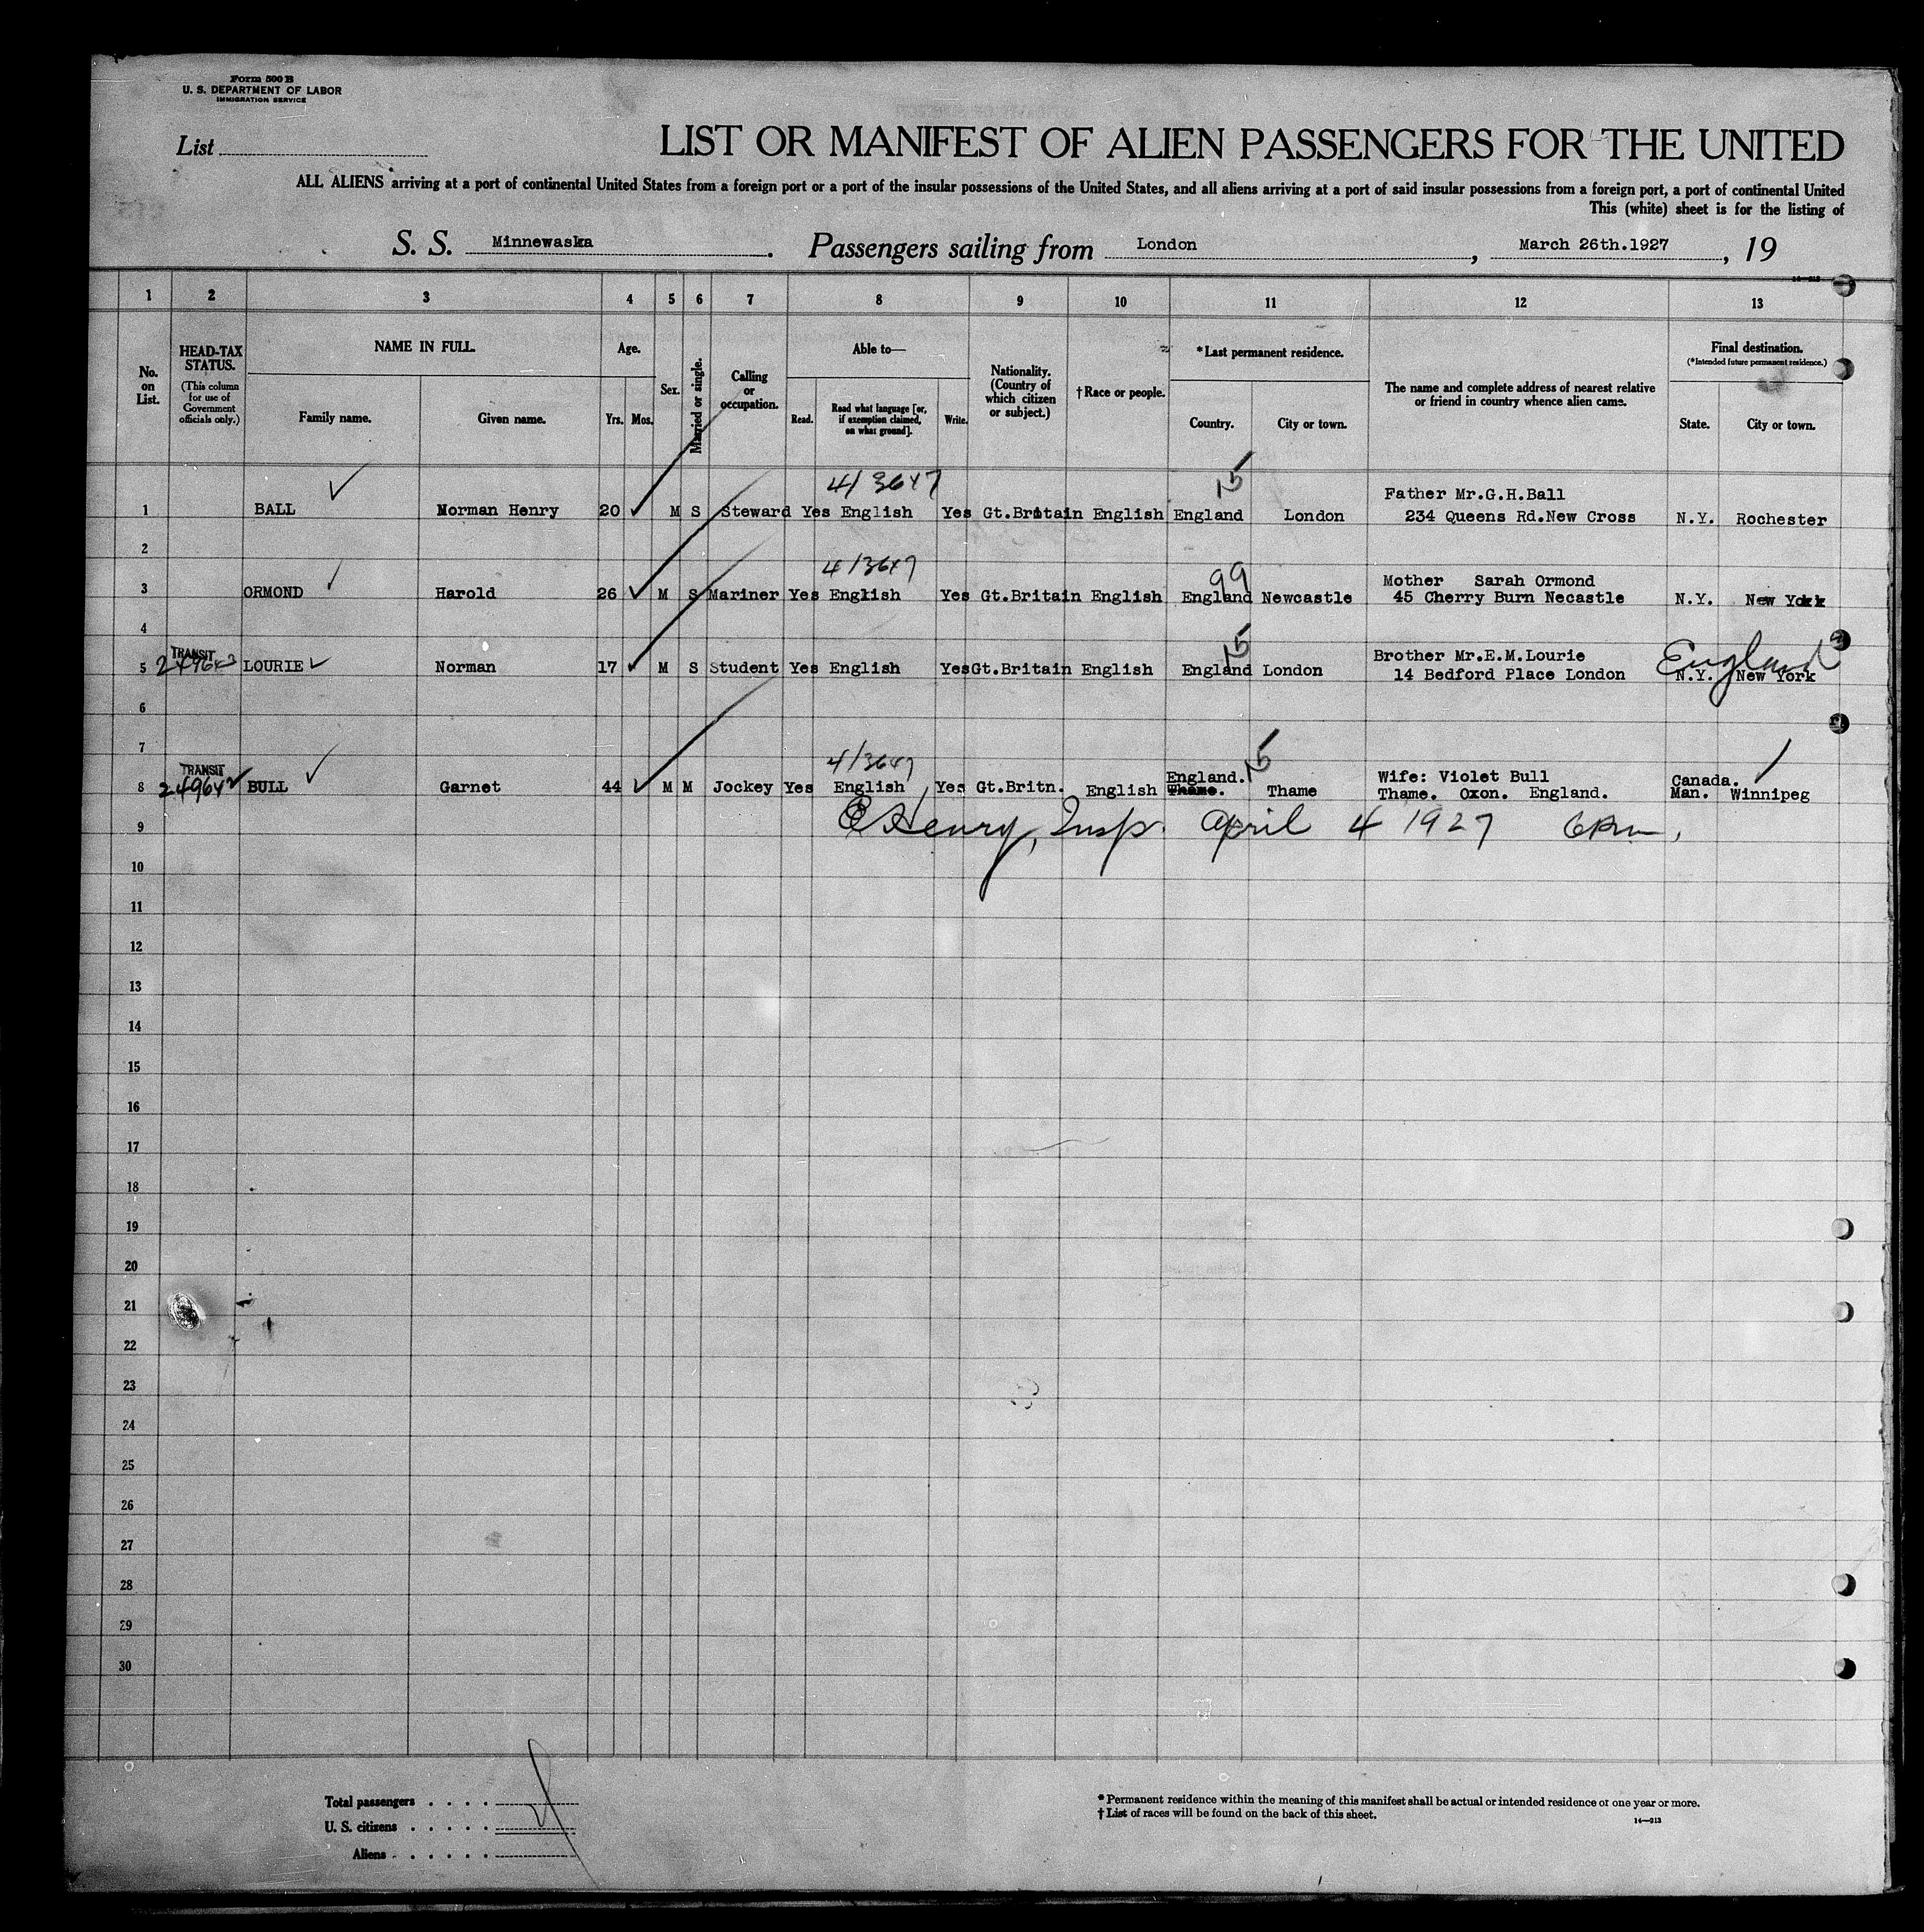 Form 500 B
U. S. DEPARTMENT OF LABOR
IMMIGRATION SERVICE
List
LIST OR MANIFEST OF ALIEN PASSENGERS FOR THE UNITED
ALL ALIENS arriving at a port of continental United States from a foreign port or a port of the insular possessions of the United States, and all aliens arriving at a port of said insular possessions from a foreign port, a port of continental United
This (white) sheet is for the listing of
S. S. Minnewaska. Passengers sailing from London, March 26th.1927, 19
14—213
1 2 3 4 5 6 7 8 9 10 11 12 13
No. on List.
HEAD-TAX STATUS.
(This column for use of Government officials only.)
NAME IN FULL.
Family name. Given name.
Age.
Yrs. Mos.
Sex.
Married or single.
Calling or occupation.
Able to—
Read. Read what language [or, if exemption claimed, on what ground]. Write.
Nationality. (Country of which citizen or subject.)
† Race or people.
*Last permanent residence.
Country. City or town.
The name and complete address of nearest relative or friend in country whence alien came.
Final destination.
(*Intended future permanent residence.)
State. City or town.
4/3647 15
Father Mr.G.H.Ball
1 BALL Norman Henry 20 M S Steward Yes English Yes Gt.Britain English England London 234 Queens Rd.New Cross N.Y. Rochester
2
4/3647 99
Mother Sarah Ormond
3 ORMOND Harold 26 M S Mariner Yes English Yes Gt.Britain English England Newcastle 45 Cherry Burn Necastle N.Y. New York
4
TRANSIT 15 England
Brother Mr.E.M.Lourie
5 249643 LOURIE Norman 17 M S Student Yes English Yes Gt.Britain English England London 14 Bedford Place London N.Y. New York
6
7
TRANSIT 4/3647 15
England. Wife: Violet Bull Canada.
8 249642 BULL Garnet 44 M M Jockey Yes English Yes Gt.Britn. English Thame. Thame Thame. Oxon. England. Man. Winnipeg
9 Henry, Insp. April 4 1927 6 Pm,
10
11
12
13
14
15
16
17
18
19
20
21
22
23
24
25
26
27
28
29
30
Total passengers
U. S. citizens
Aliens
* Permanent residence within the meaning of this manifest shall be actual or intended residence of one year or more.
† List of races will be found on the back of this sheet.
14—213